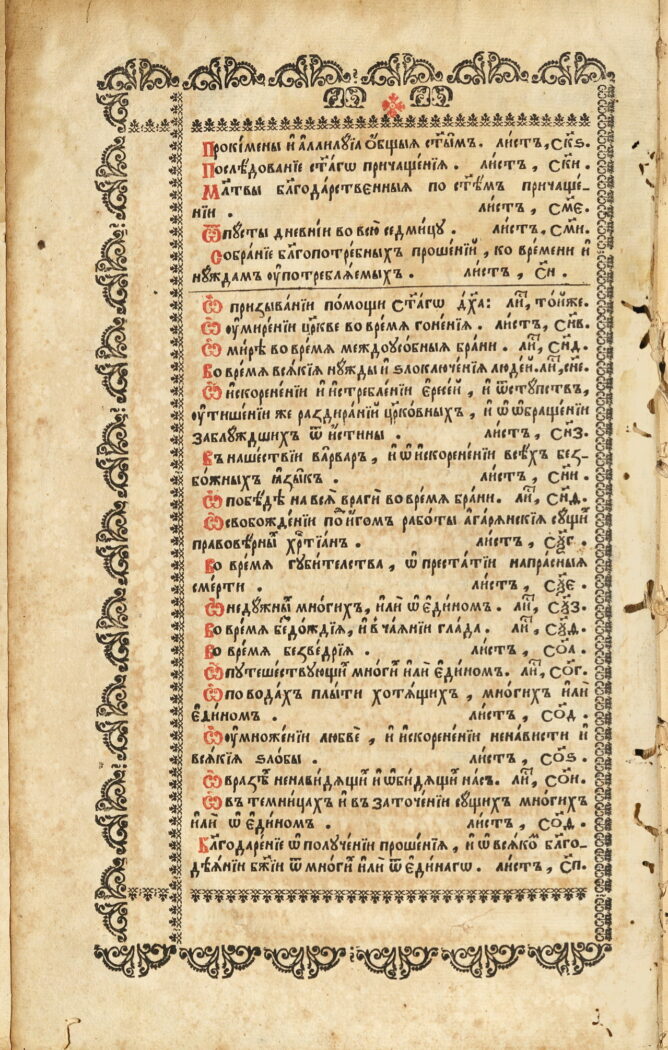 Прокі́мены и҆ а҆ллилꙋ́їа ѻ҆́бщыѧ ст҃ы̑мъ. ли́стъ, ск҃ѕ.
Послѣ́дованїе ст҃а́гѡ причаще́нїѧ. ли́стъ, ск҃и.
Мл҃твы бл҃года́рственныѧ по ст҃ѣ́мъ причаще́-
нїи . ли́стъ , см҃є.
Ѿпꙋсты дневнїи во всю̀ седмицꙋ. ли́стъ. см҃и.
Собра́нїе бл҃гопотре́бныхъ проше́нїй , ко вре́мени и҆
нꙋ́ждамъ ᲂу҆потреблѧ́емыхъ . ли́стъ , с҃н .
Ѽ призыва́нїи по́мощи ст҃а́гѡ дх҃а: ли, то́йже.
Ѽ ᲂу҆мире́нїи цр҃кве во вре́мѧ гоне́нїѧ . ли́стъ, сн҃в.
Ѽ ми́рѣ во вре́мѧ междоꙋсо́бныѧ бра́ни . ли, сн҃д.
Во вре́мѧ всѧ́кїѧ нꙋ́жды и҆ ѕлоключе́нїѧ люде́й. ли, сн҃є.
Ѽ и҆скорене́нїи и҆ и҆стребле́нїи є҆ресе́й , и҆ ѿстꙋ́пствъ,
ᲂу҆тише́нїи же раздира́нїй цр҃ко́вныхъ , и҆ ѡ҆ ѡ҆браще́нїи
заблꙋ́ждшихъ ѿ и҆́стины . ли́стъ , сн҃з.
Въ наше́ствїи ва́рваръ , и҆ ѡ҆ и҆скорене́нїи всѣ́хъ без-
бо́жныхъ ꙗ҆зы̑къ . ли́стъ , сн҃и .
Ѽ побѣ́дѣ на всѧ̀ врагѝ во вре́мѧ бра́ни. ли,
Ѽ свобожде́нїи по и҆́гомъ рабо́ты а҆га́рѧнскїѧ сꙋ́щи
правовѣ́рны хр҃тїа́нъ . ли́стъ , сѯ҃г .
Во вре́мѧ гꙋби́телства, ѡ҆ преста́тїи напра́сныѧ
сме́рти . ли́стъ , сѯ҃є .
Ѽ недꙋ́жны мно́гихъ, и҆лѝ ѡ҆ є҆ди́номъ . ли, сѯ҃з.
Во вре́мѧ бездо́ждїѧ, и҆ в̾ ча́ѧнїи гла́да . ли,
Во вре́мѧ безве́дрїѧ . ли́стъ , со҃а .
Ѽ пꙋтеше́ствꙋющи мно́ги и҆лѝ є҆ди́номъ. ли, со҃г.
Ѽ по вода́хъ плы́ти хотѧ́щихъ , мно́гихъ и҆лѝ
є҆ди́номъ . ли́стъ , со҃д .
Ѽ ᲂу҆множе́нїи любвѐ , и҆ и҆скорене́нїи не́нависти и҆
всѧ́кїѧ ѕло́бы . ли́стъ , со҃ѕ .
Ѽ вразѣ́ ненави́дѧщи и҆ ѡ҆би́дѧщи на́съ . ли, со҃и.
Ѽ въ темни́цахъ и҆ въ заточе́нїи сꙋ́щихъ мно́гихъ
и҆лѝ ѡ҆ є҆ди́номъ . ли́стъ,
Бл҃годаре́нїе ѡ҆ полꙋче́нїи проше́нїѧ , и҆ ѡ҆ всѧ́ко бл҃го-
дѣѧ́нїи бж҃їи ѿ мно́ги и҆лѝ ѿ є҆ди́нагѡ . ли́стъ , с҃п.